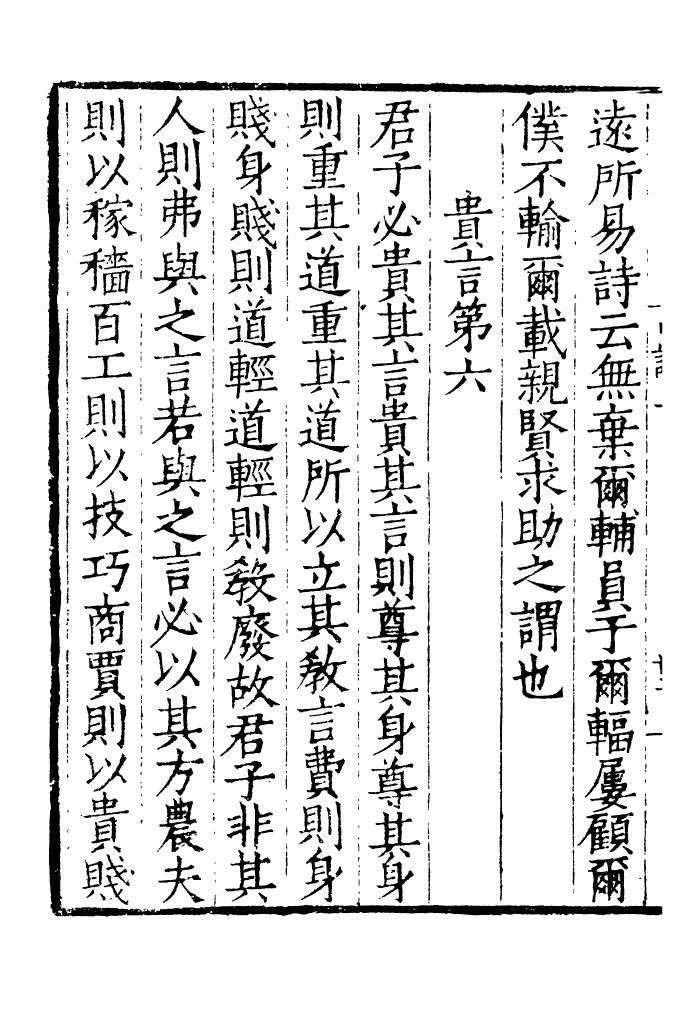 遠所易詩云無棄爾輔員于爾輻屢顧爾
僕不輸爾載親賢求助之謂也
貴言第六
君子必貴其言貴其言則尊其身尊其身
則重其道重其道所以立其教言費則身
賤身賤則道輕道輕則教廢故君子非其
人則弗與之言若與之言必以其方農夫
則以稼穡百工則以技巧商賈則以貴賤